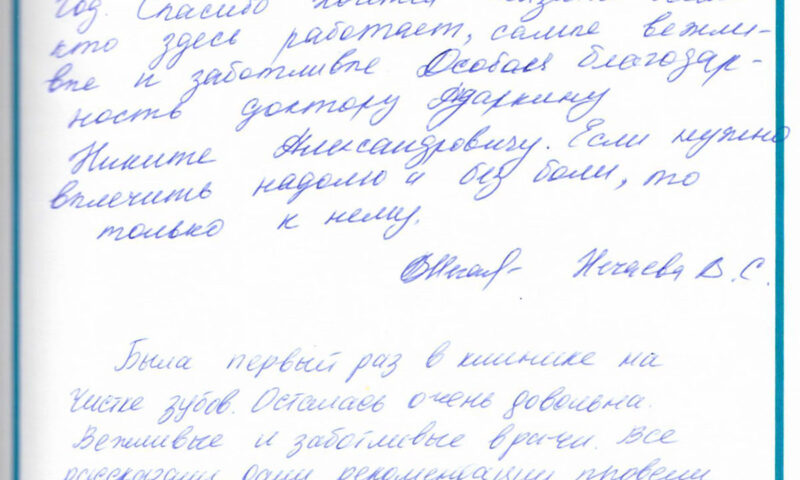 год. Спасибо
кто здесь работает, самые вежли-
вые и заботливые Особая благодар-
ность доктору Адаркину
Никите Александровичу. Если нужно
вылечить надолго и без боли, то
только к нему.
Нечаева В. С.
Была первый раз в клинике на
чистке зубов. Осталась очень довольна.
Вежливые и заботливые врачи. Все
рассказали дали рекомендации провели